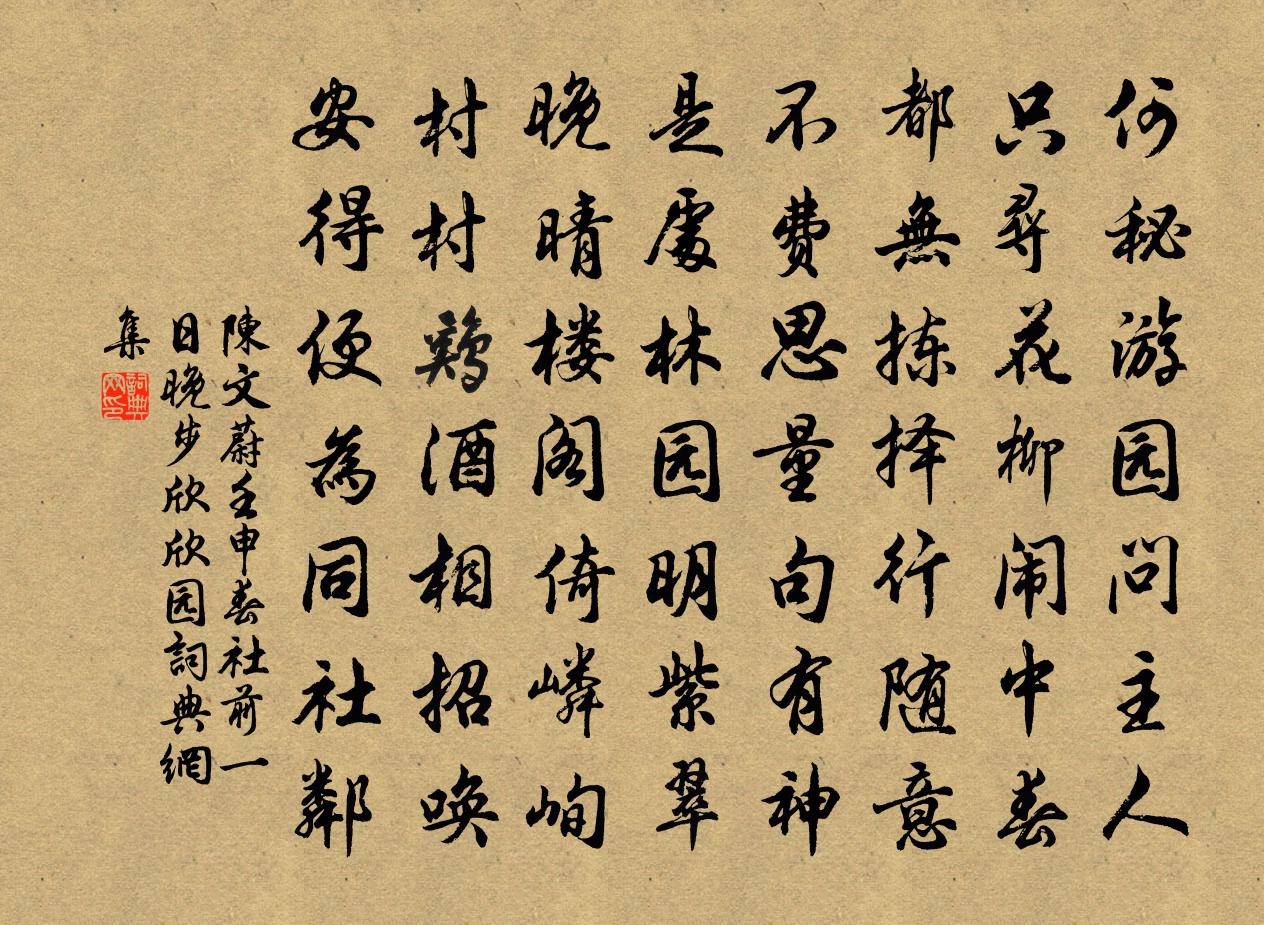 何秘游园问主人
只尋花柳闹中春
都無拣择行随意
不费思量句有神
是處林园明紫翠
晚晴楼阁倚嶙峋
村村鶏酒相招唤
安得便為同社鄰
陳文蔚壬申春社前一
日晚步欣欣园詞典網
集
詞典網印